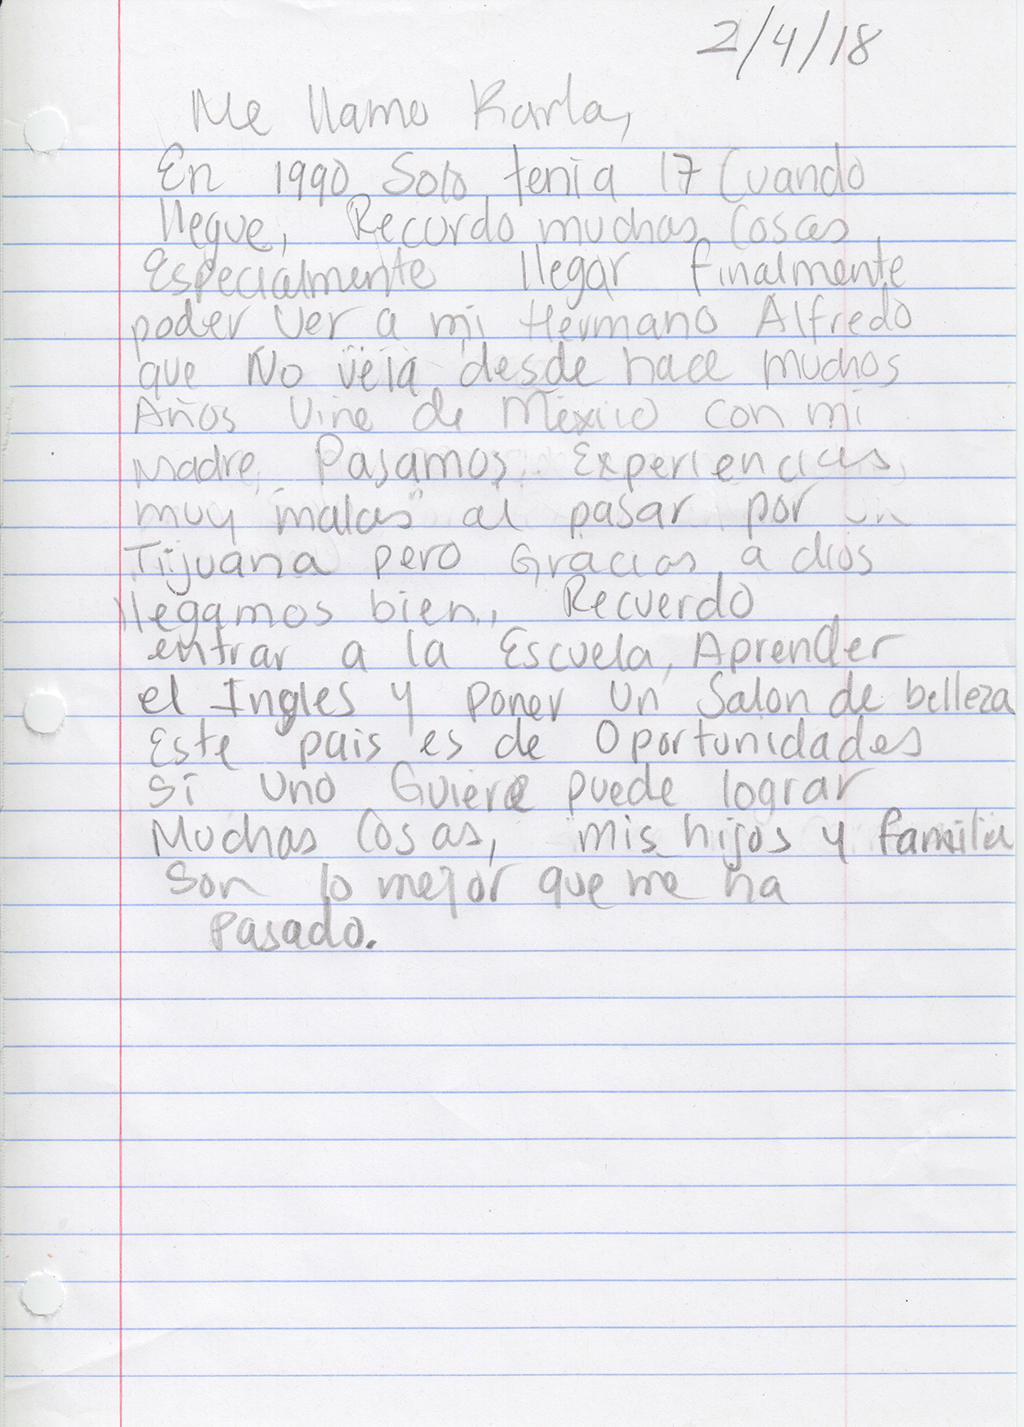 2/4/18
Me llamo Karla,
En 1990 Solo tenia 17 Cuando
llegue, Recurdo muchas Cosas,
Especialmente llegar finalmente
poder ver a mi Hermano Alfredo
que No veia desde hace muchos
Años Vine de México con mi
Madre, Pasamos Experiencias,
muy "malas" al pasar por un
Tijuana pero Gracias a dios
llegamos bien, Recuerdo
entrar a la Escuela, Aprender
el Ingles y poner un Salon de belleza
Este pais es de Oportunidades
Si Uno Guiere puede lograr
Muchas Cosas, mis hijos y familia
Son lo mejor que me ha
Pasado.